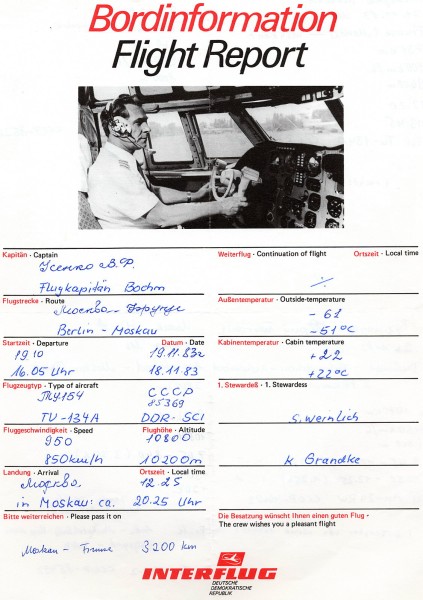 Bordinformation
Flight Report
Kapitän · Captain
Weiterflug · Continuation of flight Ortszeit · Local time
Усенко В.Ф.
Flugkapitän Bochm
Flugstrecke · Route
Außentemperatur · Outside-temperature
Москва-
Berlin - Moskau
- 61
- 51°C
Startzeit · Departure Datum · Date
Kabinentemperatur · Cabin temperature
1910 19.11.83г
16.05 Uhr 18.11.83
+22
+22°C
Flugzeugtyp · Type of aircraft
1. Stewardeß · 1. Stewardess
ТУ154 СССР
85369
TU-134A DDR-SCI
S. Wernlich
Fluggeschwindigkeit · Speed Flughöhe · Altitude
950 10800
850km/h 10200m
K. Grandke
Landung · Arrival Ortszeit · Local time
12.25
in Moskau: ca. 20.25 Uhr
Bitte weiterreichen · Please pass it on
Die Besatzung wünscht Ihnen einen guten Flug ·
The crew wishes you a pleasant flight
Moskau - 3200 km
INTERFLUG
DEUTSCHE
DEMOKRATISCHE
REPUBLIK